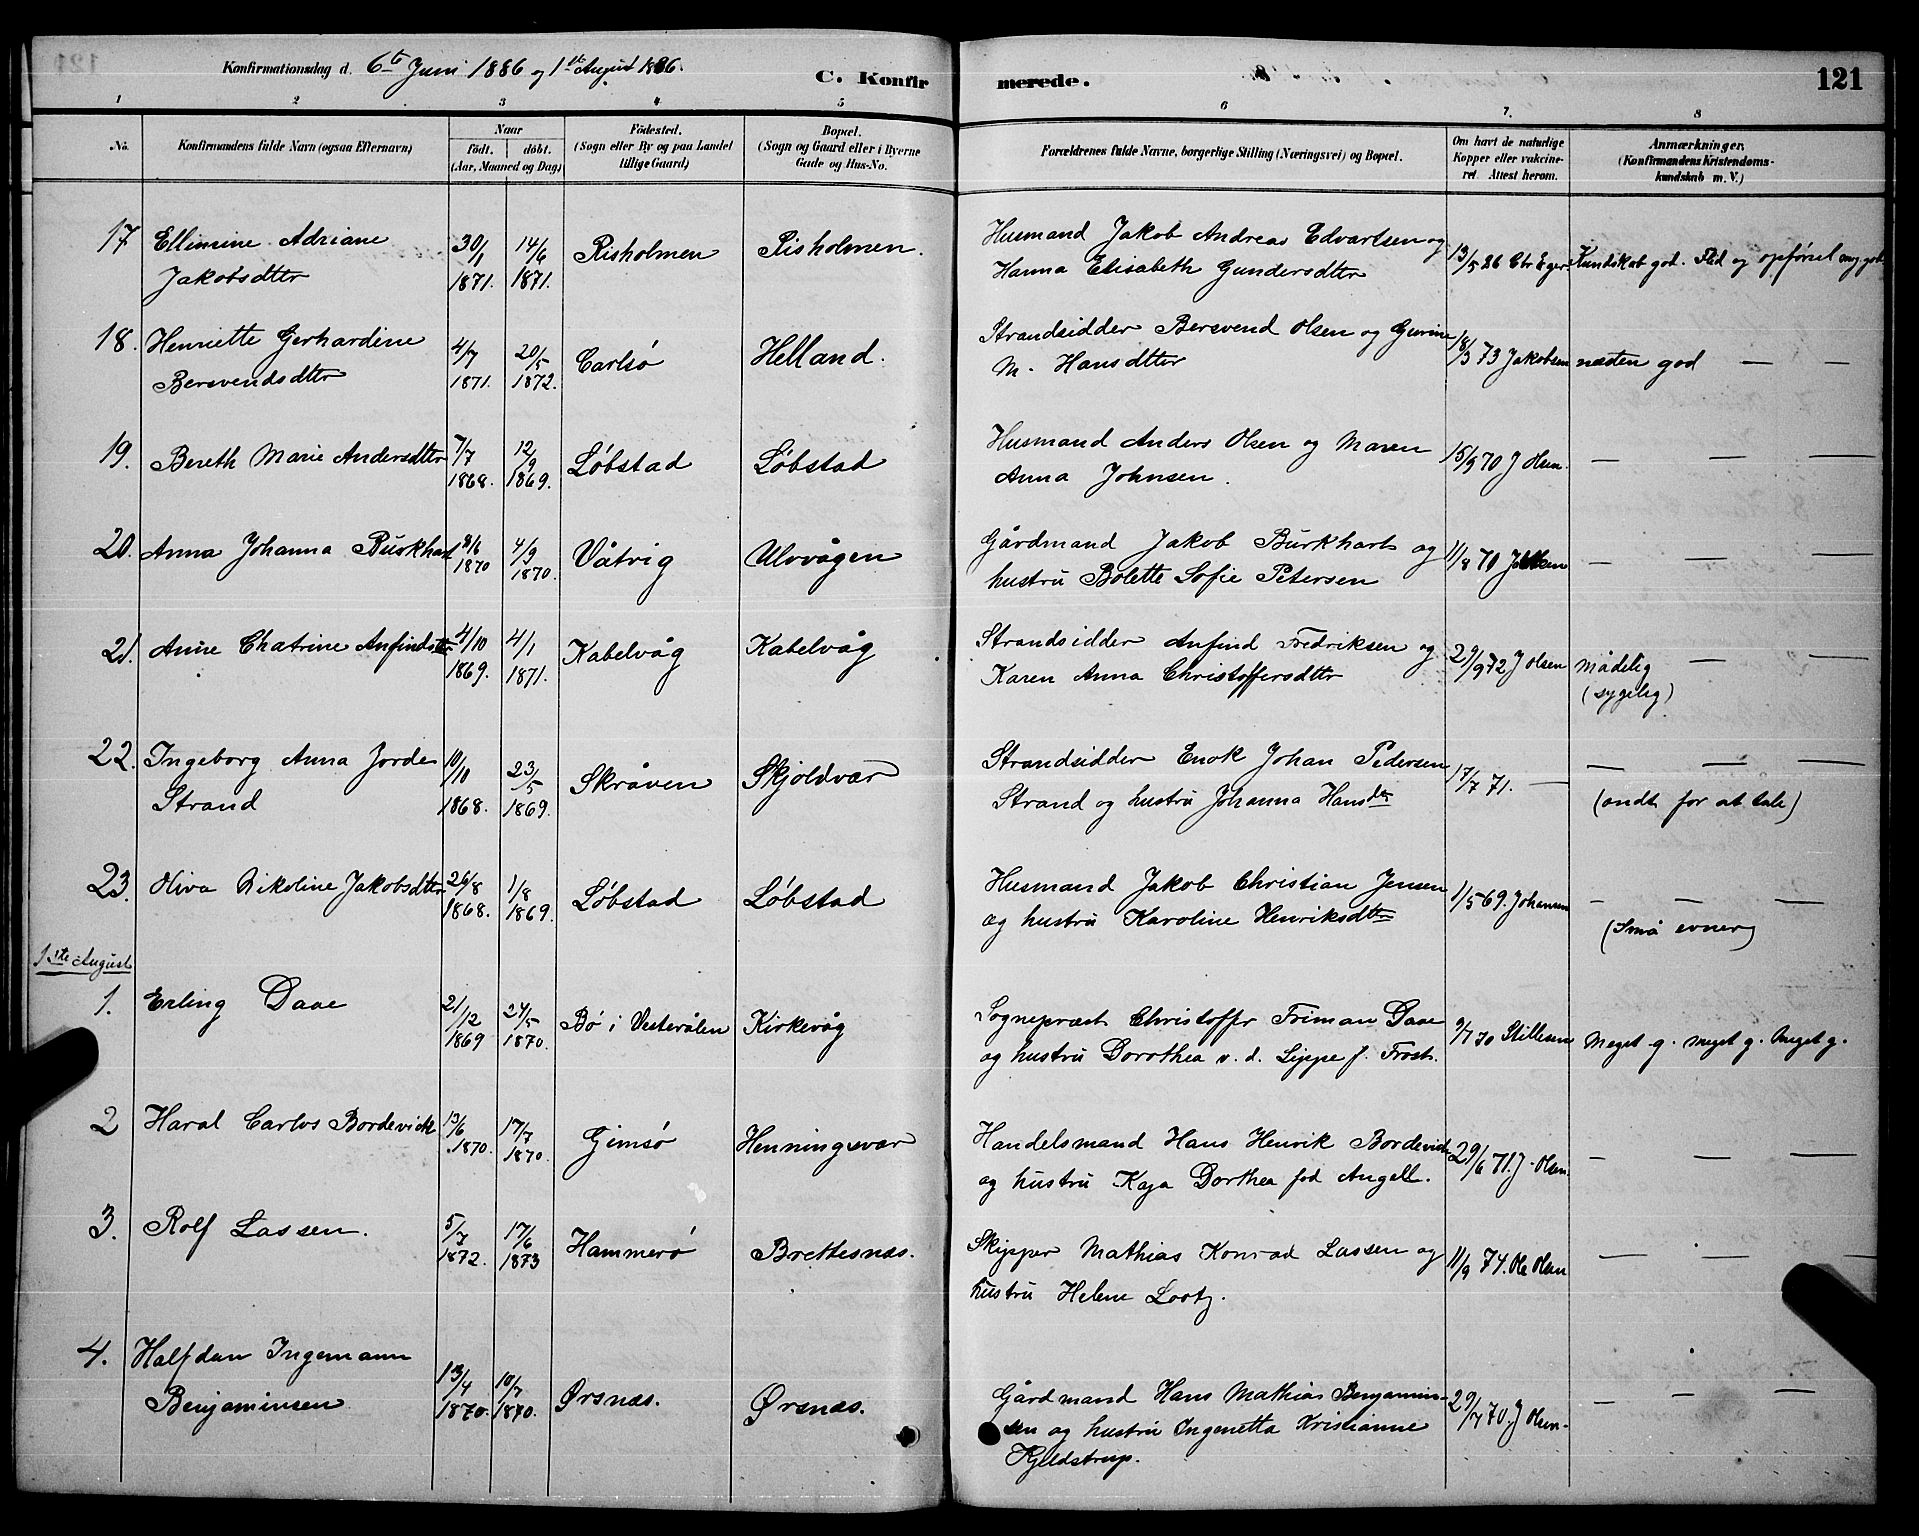 Konfirmationsdag d. 6te Juni 1886 og 1ste August 1886.
C. Konfirmerede.
121
1 2 3 4 5 6 7. 8
No.
Konfirmandens fulde Navn (ogsaa Efternavn)
Naar
födt. döbt.
(Aar, Maaned og Dag)
Födested.
(Sogn eller By og paa Landet
tillige Gaard)
Bopæl.
(Sogn og Gaard eller i Byerne
Gade og Hus-No.
Forældrenes fulde Navne, borgerlige Stilling (Næringsvei) og Bopæl.
Om havt de naturlige
Kopper eller vakcine-
ret. Attest herom.
Anmærkninger.
(Konfirmandens Kristendoms-
kundskab m. V.)
17 Ellimine Adriane
Jakobsdtter
30/1 1871. 14/6 1871. Risholmen Risholmen.
Husmand Jakob Andreas Edvartsen og
Hanna Elisabeth Gundersdtter
13/5 86 Chr Eger Kundskab god. Flid og opførsel meg god
18. Henriette Gerhardine
Bersvendsdtter
4/7 1871. 20/5 1872. Carlsö Helland.
Strandsidder Bersvend Olsen og Gurine
M. Hansdtter
18/3 73 Jakobsen næsten god — —
19. Bereth Marie Andersdtter
7/7 1868. 12/9 1869. Löbstad Löbstad
Husmand Anders Olsen og Maren
Anna Johnsen.
15/9 70 J Olsen. — — —
20. Anna Johanna Burkhart
8/6 1870 4/9 1870. Våtvig Ulvvågen
Gårdmand Jakob Burkhart og
hustru Bolette Sofie Petersen
11/8 70 J Olsen — — —
21. Anne Chatrine Anfindsdtter
4/10 1869. 4/1 1871. Kabelvåg Kabelvåg
Strandsidder Anfind Fredriksen og
Karen Anna Christoffersdtter
29/9 72 J Olsen mådelig — —
(sygelig)
22. Ingeborg Anna Jorde
Strand
10/10 1868. 23/5 1869. Skråven Skjoldvær
Strandsidder Enok Johan Pedersen
Strand og hustru Johanna Hansdtr
17/7 71. — — — —
(ondt for at tale)
23. Oliva Nikoline Jakobsdtter
26/8 1868. 1/8 1869. Löbstad Löbstad
Husmand Jakob Christian Jensen
og hustru Karoline Henriksdtter
1/5 69. Johansen — — —
(Små evner)
1ste August
1. Erling Daae
21/12 1869 24/5 1870. Bö i Vesterålen Kirkevåg
Sognepræst Christoffer Friman Daae
og hustru Dorothea v. d. Lippe f. Frost.
9/7 70 Stillesen Meget g. meget g. Meget g.
2 Haral Carlos Bordevick
13/6 1870. 17/7 1870. Gimsö Henningsvær
Handelsmand Hans Henrik Bordevick
og hustru Kaja Dorthea fød Angell.
29/6 71. J. Olsen — — —
3. Rolf Lassen.
5/7 1872. 17/6 1873 Hammerö Brettesnæs.
Skipper Mathias Konrad Lassen og
hustru Helene Lootz.
11/9 74. Ole Olsen — — —
4. Halfdan Ingemann
Benjaminsen
13/4 1870. 10/7 1870. Ørsnæs. Ørsnæs.
Gårdmand Hans Mathias Benjamin-
sen og hustru Ingenetta Kristianne
Kjeldstrup.
29/7 70. J Olsen — — —